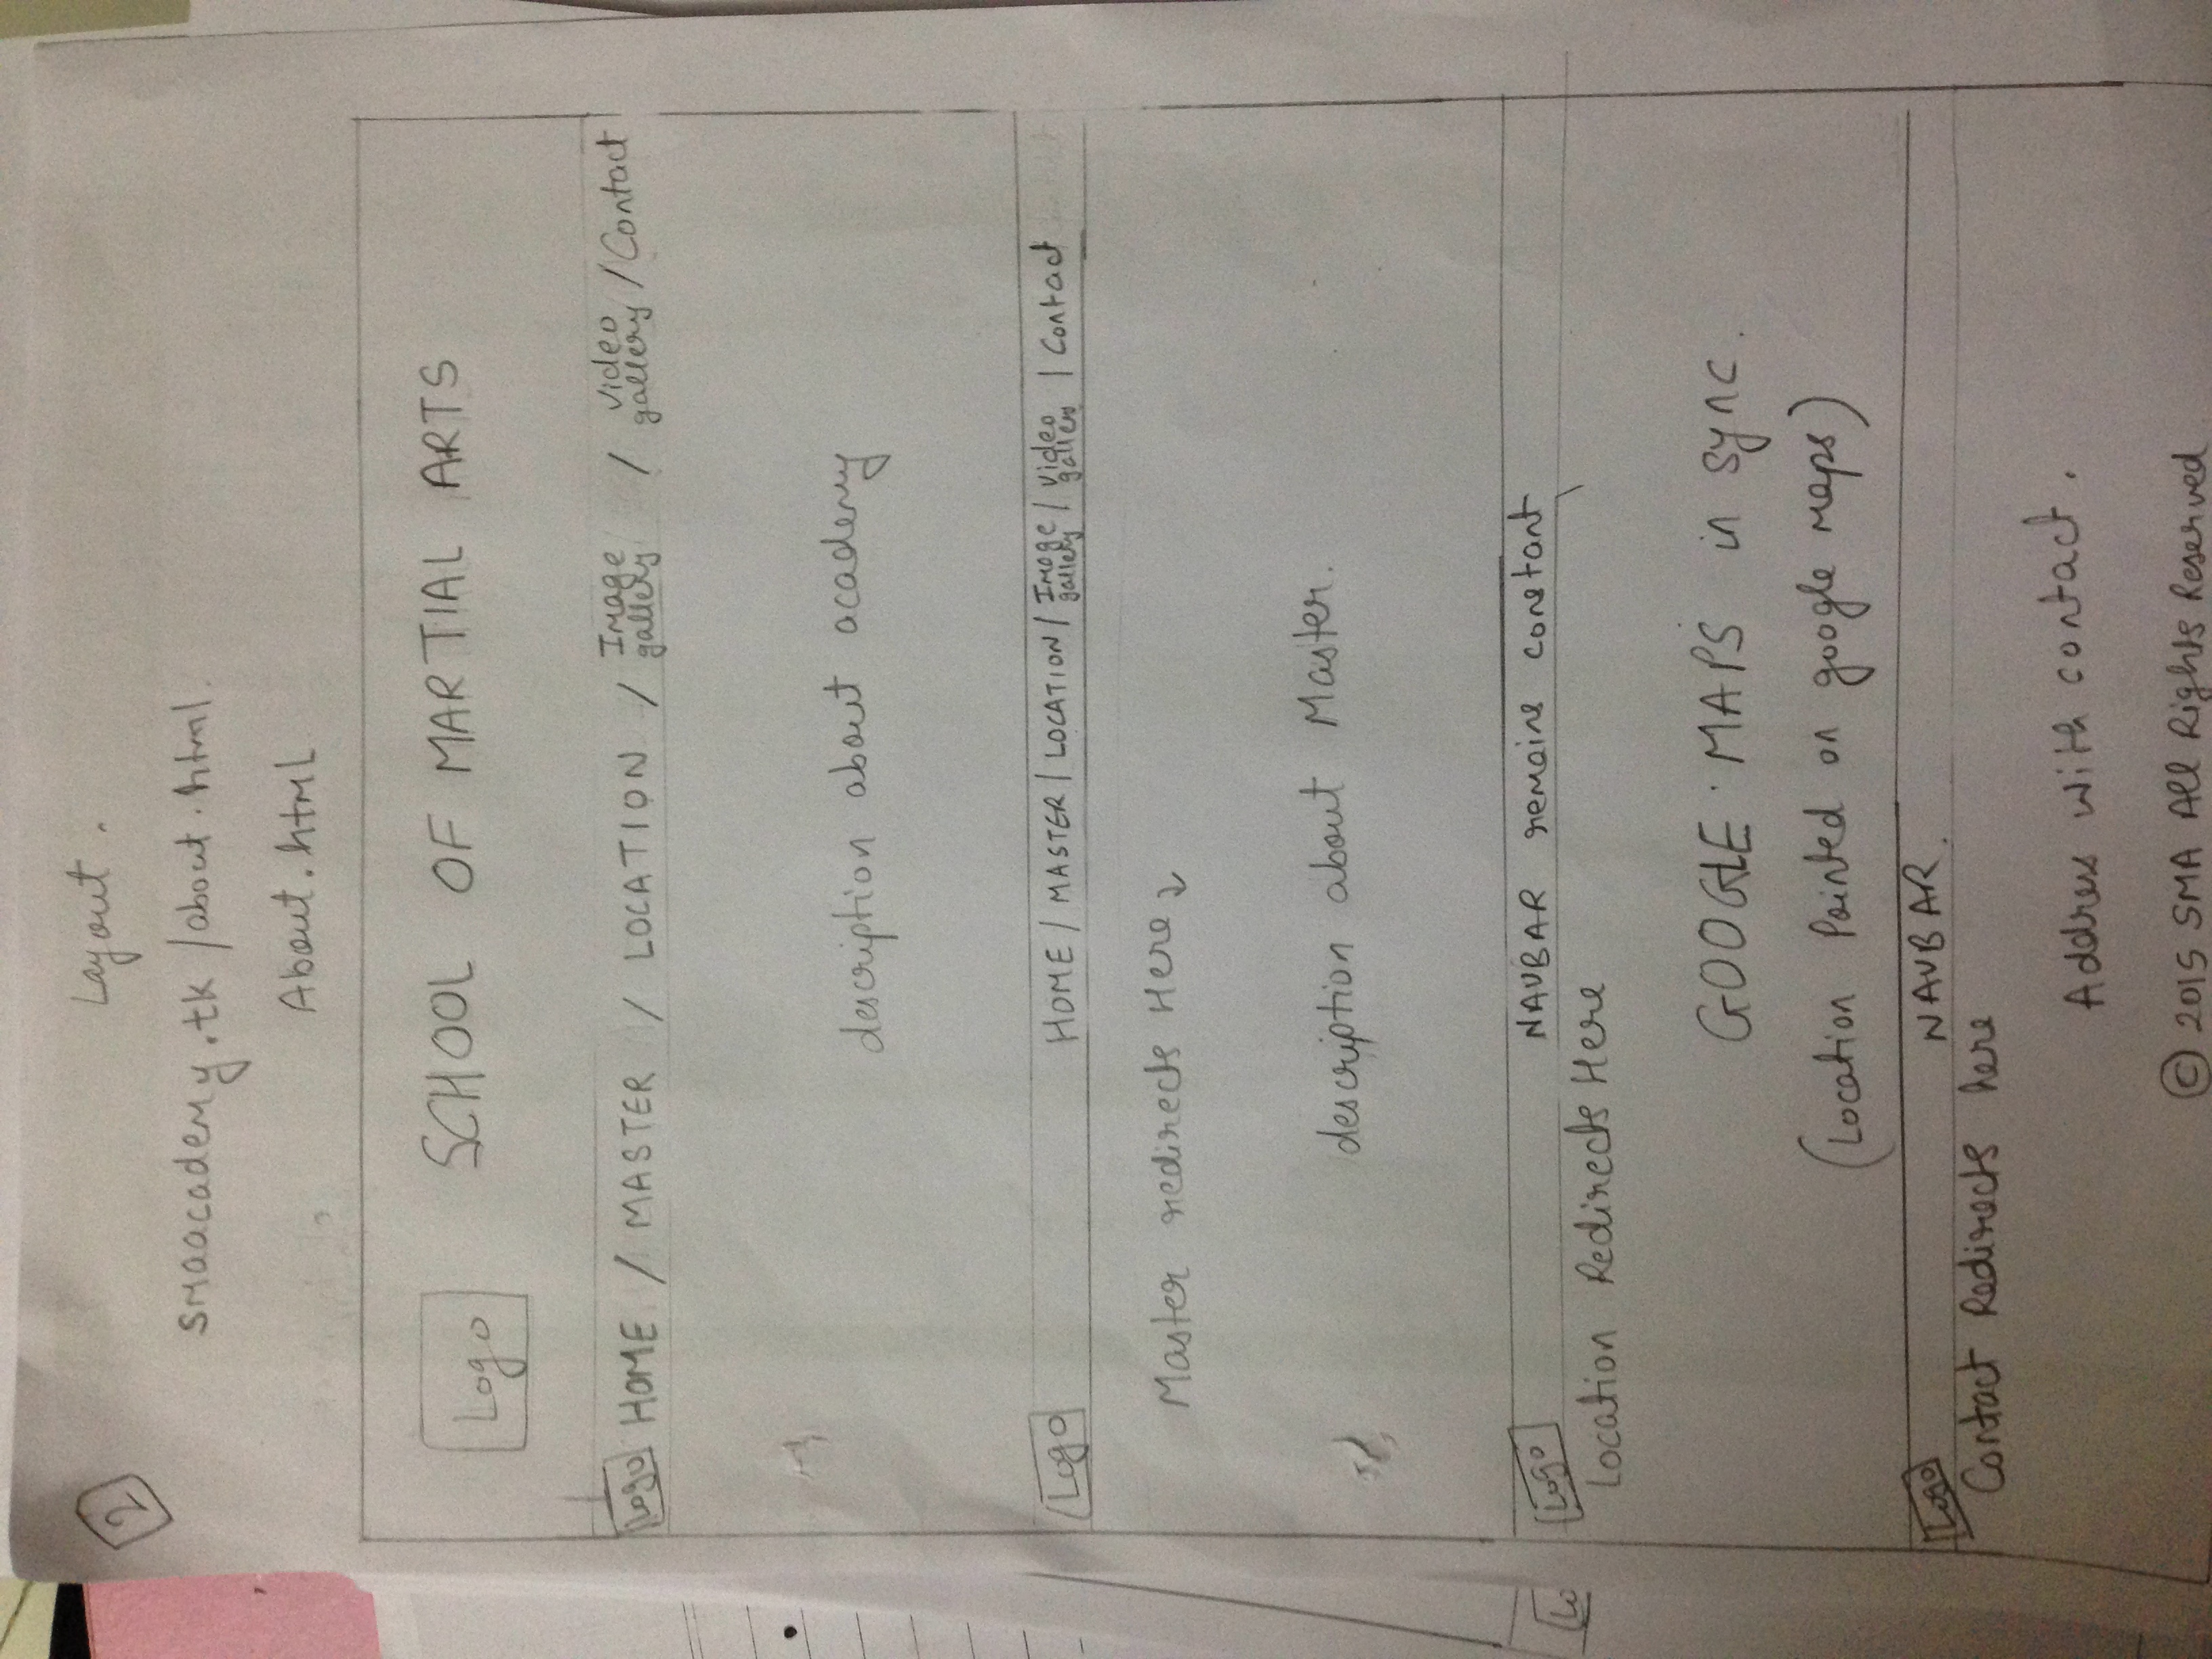 2
Layout.
smaacademy.tk/about.html.
About.html
Logo
SCHOOL OF MARTIAL ARTS
Logo HOME / MASTER / LOCATION / Image gallery / video gallery / Contact
description about academy
Logo HOME / MASTER / LOCATION / Image gallery / video gallery | Contact
Master redirects Here
description about Master.
Logo NAVBAR remains constant
Location Redirects Here
GOOGLE MAPS in sync.
(Location Pointed on google maps)
Logo NAVBAR.
Contact Redirects here
Address with contact.
© 2015 SMA All Rights Reserved